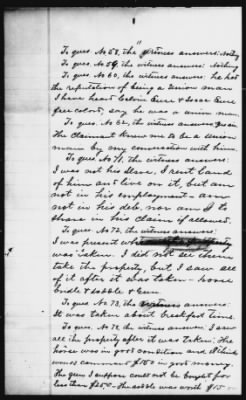 To ques. No 58, the witness answers: Nothing
To ques. No 59, the witness answers: Nothing
To ques. No 60, the witness answers: he had
the reputation of being a Union man
I have heard Calvin & Isaac
free colord, say he was a union man
To ques. No 62, the witness answers
The claimant knew me to be a Union
man by my conversation with him.
To ques. No 71, the witness answers:
I was not his Slave, I rent land
of him and live on it, but am
not in his employment – am
not in his debt, nor am I to
share in his claim if allowed.
To ques. No 72, the witness answers:
I was present when
was taken. I did not see them
take the property, but I saw all
of it after it was taken – horse
bridle & saddle &
To ques. No 73, the witness answers:
It was taken about breakfast time.
To ques. No 74, the witness answers: I saw
all the property after it was taken. The
horse was in good condition and I think
would command $150 in good money.
The I suppose could not be bought for
less than $250 – the saddle was worth $15 –